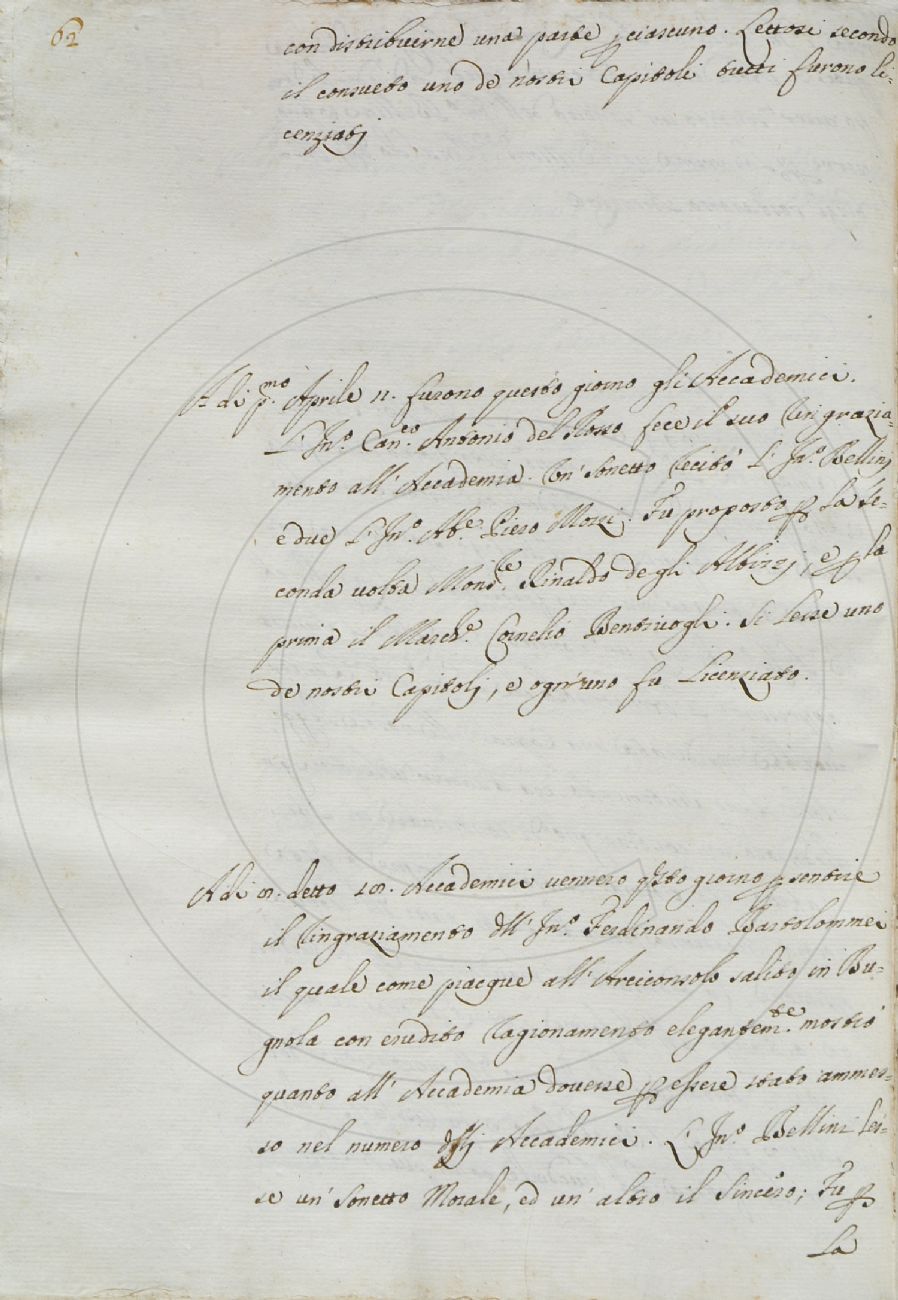 62
con distribuirne una parte p ciascuno. Lettosi secondo
il consueto uno de nostri Capitoli tutti furono li=
cenziatj
A di p.mo Aprile 11. furono questo giorno gli Accademici.
L' Jn.o Can.co Antonio del Rosso fece il suo Ringrazia=
mento all' Accademia. Un' Sonetto Recitò L' Jn.o Bellinj
e due L' Jn.o Ab.e Piero Mozzi. Fu proposto p La Se=
conda volta Mons.re Rinaldo degli Albizzj, e p la
prima il March.e Cornelio Bentivogli. Si Lesse uno
de nostri Capitolj, e ogn'uno fu Licenziato.
A di detto Accademici vennero qsto giorno p sentire
il Ringraziamento dll' Jn.o Ferdinando Bartolommei
il quale come piacque all' Arciconsolo salito in Bu=
gnola con erudito Ragionamento elegantem.te mostrò
quanto all' Accademia dovesse p essere stato ammes=
so nel numero dllj Accademici. L' Jn.o Bellini Les=
se un' Sonetto Morale, ed un' altro il Sincero; Fu p
La